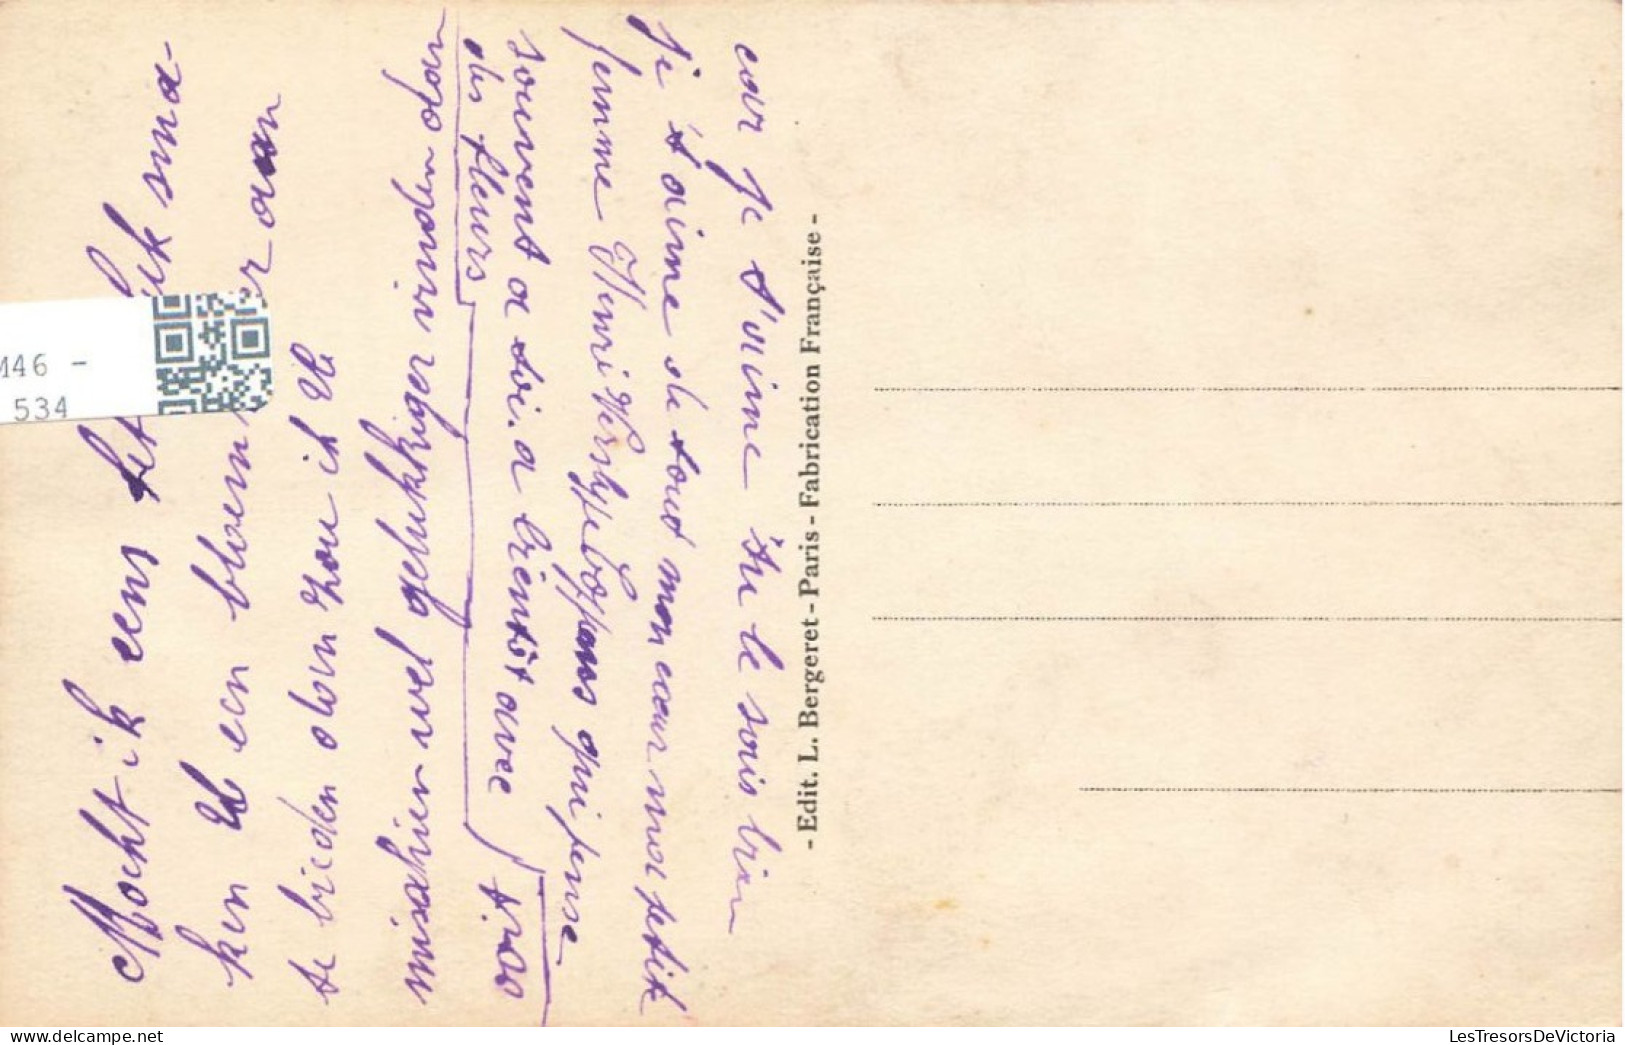 Mocht ik eens het geluk sma-
ken U een bloem er aan
te bieden dan zou ik U
misschien wel gelukkiger vinden dan
des fleurs
souvent a toi. a bientôt avec
femme Henri qui pense
Je t'aime de tout mon cœur ma petit
car Je t'aime tu le sais bien
- Edit. L. Bergeret - Paris - Fabrication Française -
M46 -
534
LesTresorsDeVictoria